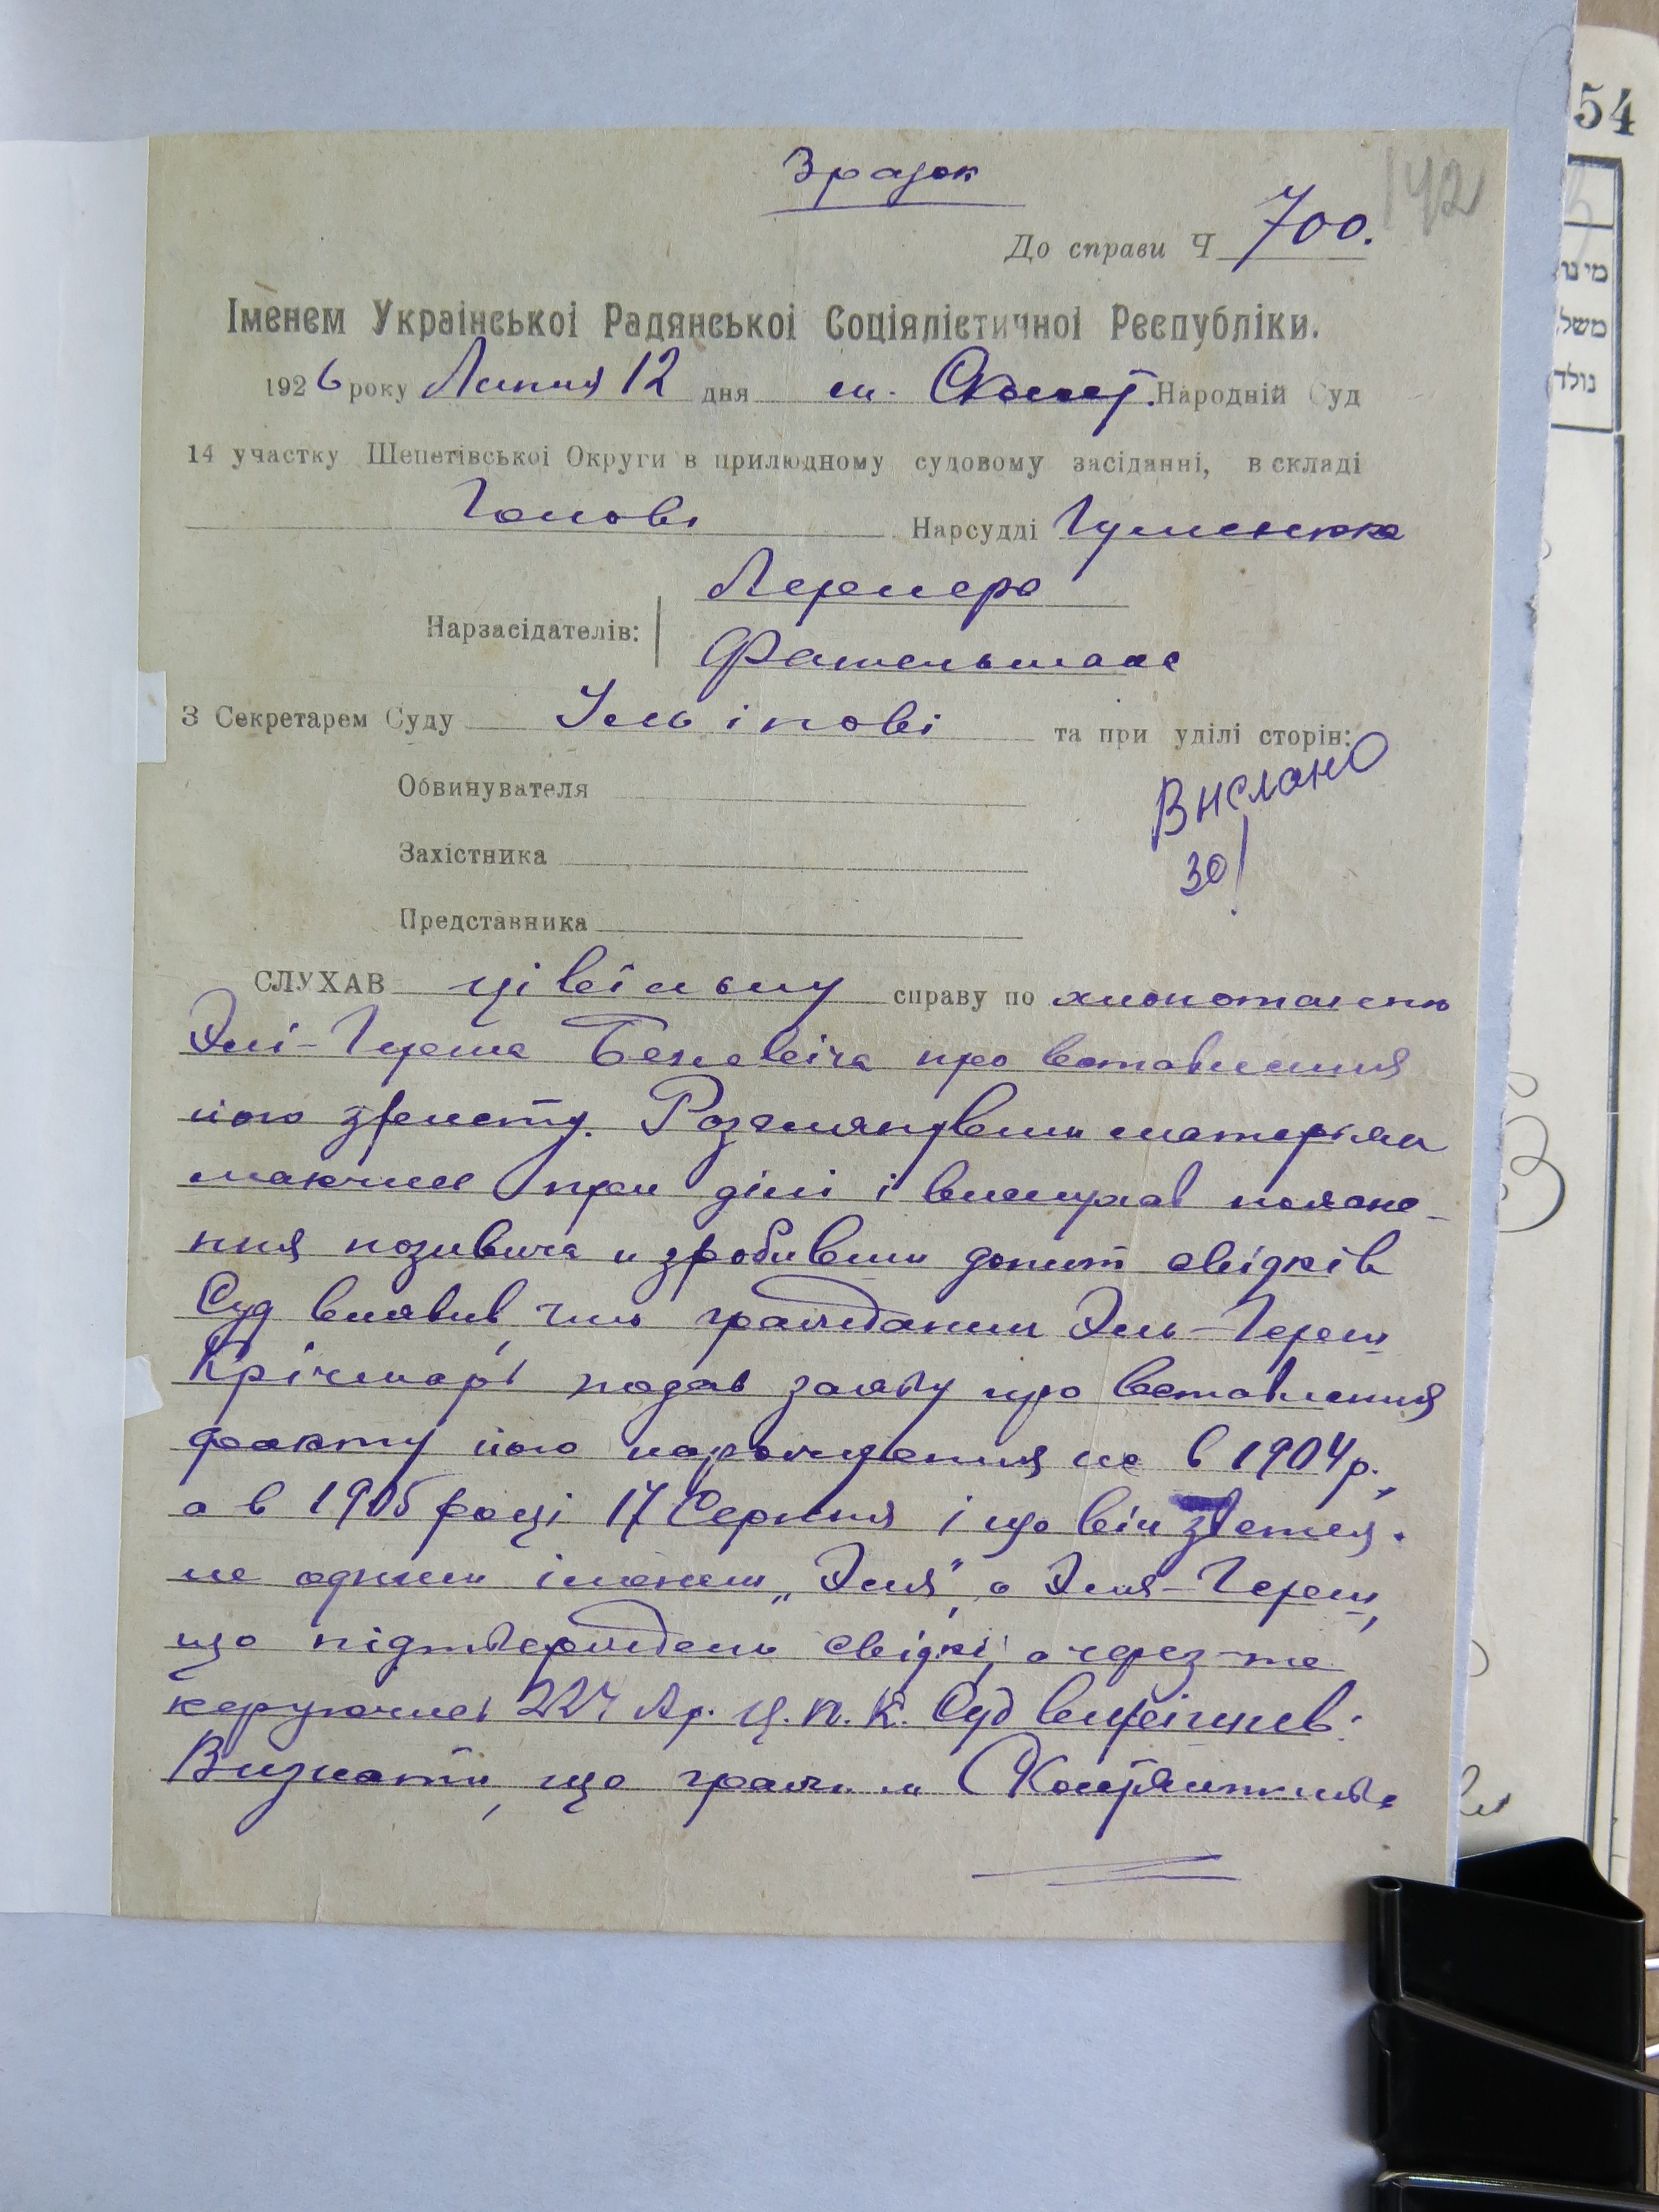 Зразок
142
До справи Ч 700.
Іменем Украінськоі Радянськоі Соціялістичноі Республіки.
1926 року Липня 12 дня м. Народній Суд
14 участку Шепетівськоі Округи в прилюдному судовому засіданні, в складі
Голови Нарсудді Гуменюка
Лернера
Нарзасідателів:
Фательмана
З Секретарем Суду та при уділі сторін:
Обвинувателя
Вислано
30/
Захістника
Представника
СЛУХАВ цівільну справу по клопотанню
Элі-Гереша про вставлення
його Розглянувши матеріял
маючись при ділі і вислухав поясне-
ння позивача и зробивши допит свідків
Суд виявив, гражданин Эль-Гереш
подав заяву про вставлення
факту його нарождення не в 1904 р.,
а в 1905 році 17 Серпня і що він зветься
не одним іменем „Эля", а Эля-Гереш,
що підтвердели свідкі, а через-те
керуючись 227 Ар. Ц.П.К. Суд вирішив:
Визнати, що гражд. м.
54
מי נו
משל
נולד